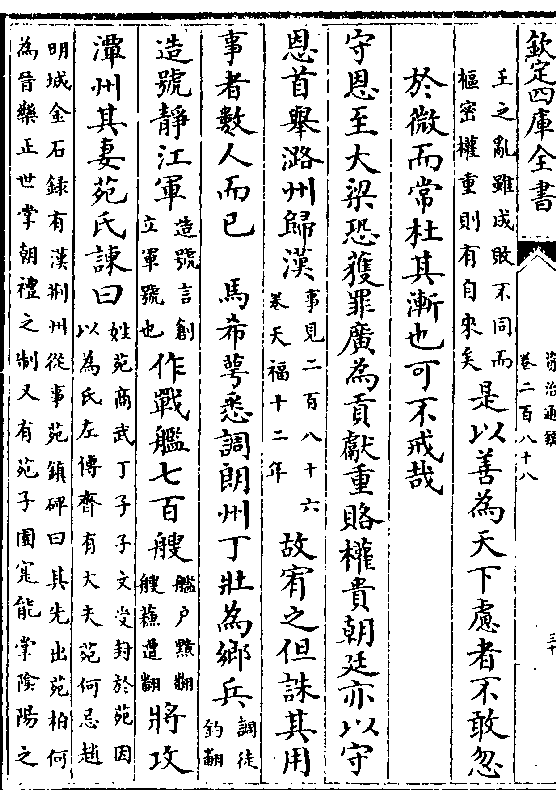 欽定四庫全書
資治通鑑
卷二百八十八
三十
王之亂雖成敗不同而
樞密權重則有自來矣
是以善為天下慮者不敢忽
於微而常杜其漸也可不戒哉
守恩至大梁恐獲罪廣為貢獻重賂權貴朝廷亦以守
恩首舉潞州歸漢
事見二百八十六
卷天福十二年
故宥之但誅其用
事者數人而已 馬希萼悉調朗州丁壯為鄉兵
調徒
釣翻
造號靜江軍
造號言創
立軍號也
作戰艦七百艘
艦户黤翻
艘蘇遭翻
將攻
潭州其妻苑氏諫曰
姓苑商武丁子子文受封於苑因
以為氏左傳齊有大夫苑何忌趙
明城金石録有漢荆州從事苑鎮碑曰其先出苑柏何
為晉樂正世掌朝禮之制又有苑子園寔能掌陰陽之